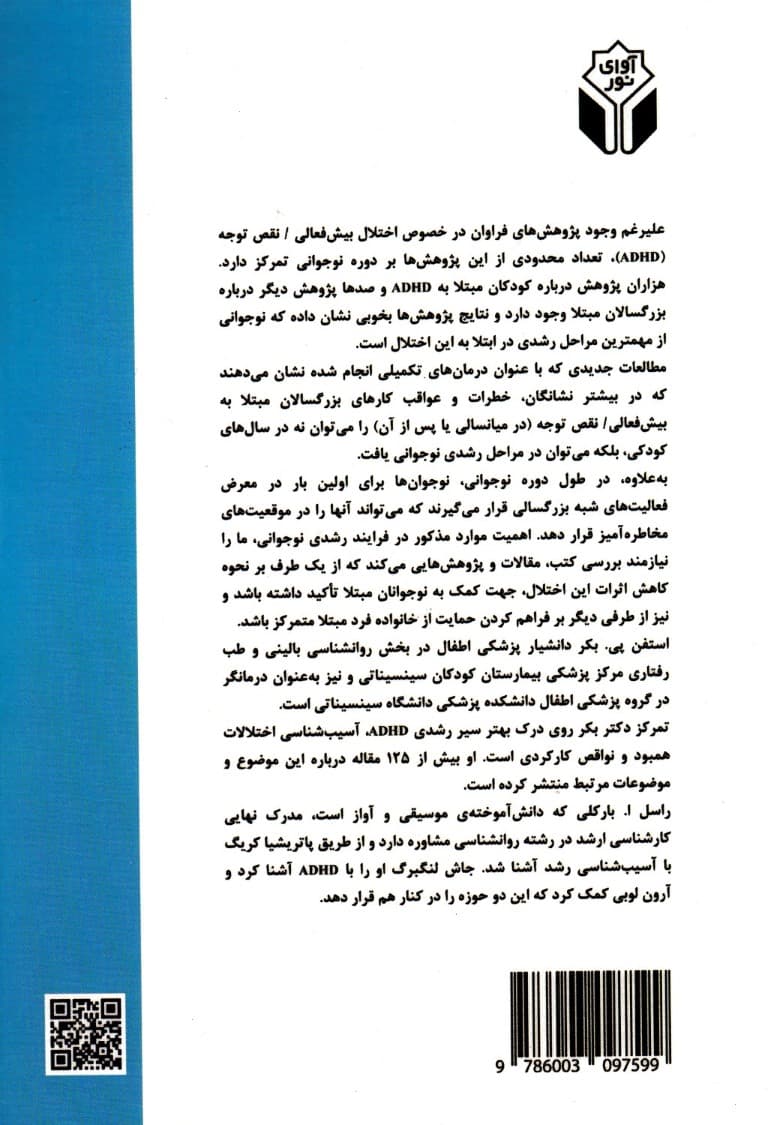 آوای
نور
علیرغم وجود پژوهش‌های فراوان در خصوص اختلال بیش‌فعالی / نقص توجه
(ADHD)، تعداد محدودی از این پژوهش‌ها بر دوره نوجوانی تمرکز دارد.
هزاران پژوهش درباره کودکان مبتلا به ADHD و صدها پژوهش دیگر درباره
بزرگسالان مبتلا وجود دارد و نتایج پژوهش‌ها بخوبی نشان داده که نوجوانی
از مهمترین مراحل رشدی در ابتلا به این اختلال است.
مطالعات جدیدی که با عنوان درمان‌های تکمیلی انجام شده نشان می‌دهند
که در بیشتر نشانگان، خطرات و عواقب کارهای بزرگسالان مبتلا به
بیش‌فعالی/ نقص توجه (در میانسالی یا پس از آن) را می‌توان نه در سال‌های
کودکی، بلکه می‌توان در مراحل رشدی نوجوانی یافت.
به‌علاوه، در طول دوره نوجوانی، نوجوان‌ها برای اولین بار در معرض
فعالیت‌های شبه بزرگسالی قرار می‌گیرند که می‌تواند آنها را در موقعیت‌های
مخاطره‌آمیز قرار دهد. اهمیت موارد مذکور در فرایند رشدی نوجوانی، ما را
نیازمند بررسی کتب، مقالات و پژوهش‌هایی می‌کند که از یک طرف بر نحوه
کاهش اثرات این اختلال، جهت کمک به نوجوانان مبتلا تأکید داشته باشد و
نیز از طرفی دیگر بر فراهم کردن حمایت از خانواده فرد مبتلا متمرکز باشد.
استفن پی. بکر دانشیار پزشکی اطفال در بخش روانشناسی بالینی و طب
رفتاری مرکز پزشکی بیمارستان کودکان سینسیناتی و نیز به‌عنوان درمانگر
در گروه پزشکی اطفال دانشکده پزشکی دانشگاه سینسیناتی است.
تمرکز دکتر بکر روی درک بهتر سیر رشدی ADHD، آسیب‌شناسی اختلالات
همبود و نواقص کارکردی است. او بیش از ۱۲۵ مقاله درباره این موضوع و
موضوعات مرتبط منتشر کرده است.
راسل ا. بارکلی که دانش‌آموخته‌ی موسیقی و آواز است، مدرک نهایی
کارشناسی ارشد در رشته روانشناسی مشاوره دارد و از طریق پاتریشیا کریگ
با آسیب‌شناسی رشد آشنا شد. جاش لنگبرگ او را با ADHD آشنا کرد و
آرون لوبی کمک کرد که این دو حوزه را در کنار هم قرار دهد.
9 786003 097599